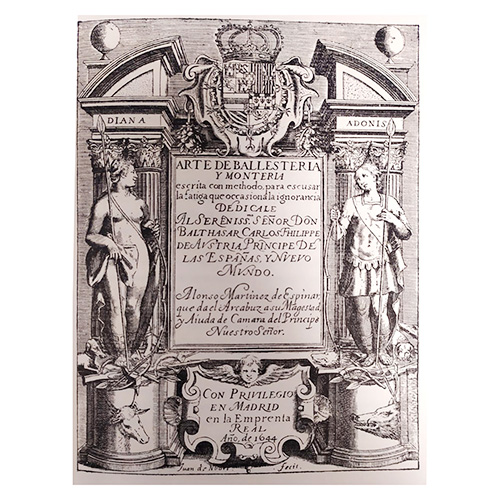 DIANA
ADONIS
ARTE DE BALLESTERIA
Y MONTERIA
escrita con methodo, para escusar
la fatiga que occasiona la ignorancia
DEDICALE
AL SERENISS. SEÑOR DON
BALTHASAR CARLOS PHILIPPE
DE AVSTRIA PRINCIPE DE
LAS ESPAÑAS, Y NVEVO
MVNDO.
Alonso Martinez de Espinar,
que da el Arcabuz a su Magestad,
y Aiuda de Camara del Principe
Nuestro Señor.
CON PRIVILEGIO
EN MADRID
en la Emprenta
REAL
Año, de 1644
Juan de fecit.